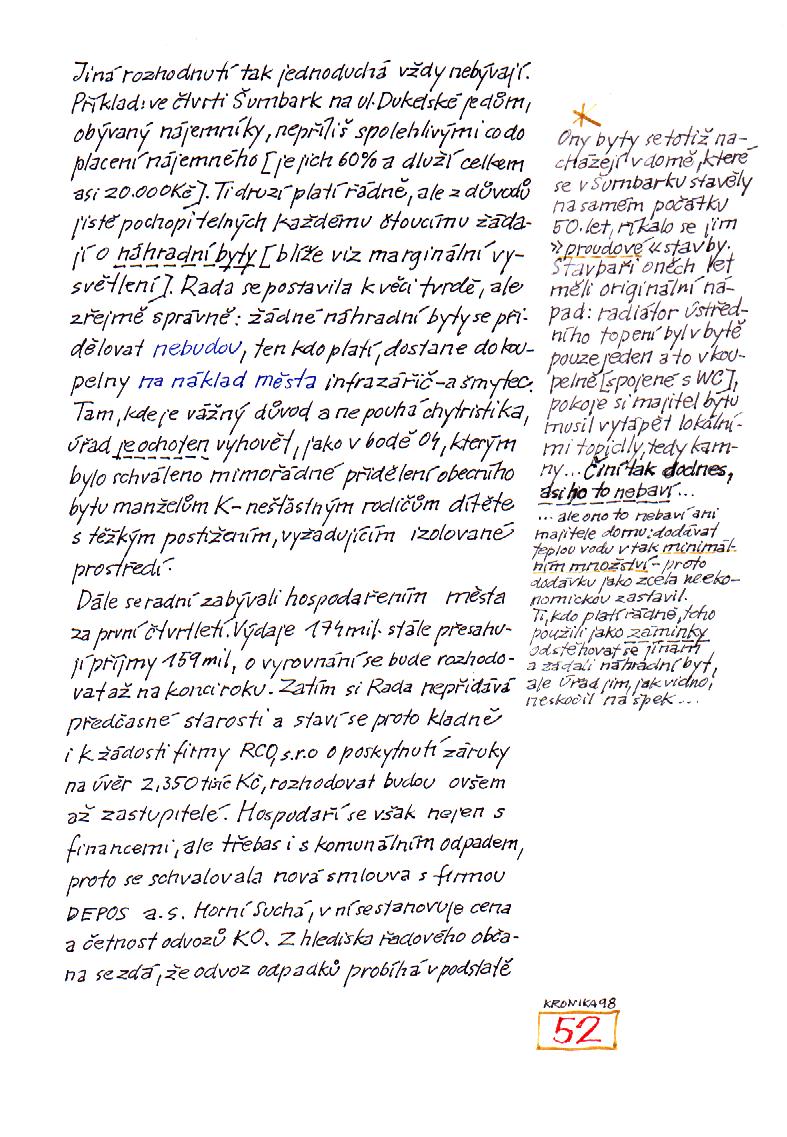 Jiná rozhodnutí tak jednoduchá vždy nebývají.
Příklad: ve čtvrti Šumbark na ul. Dukelské je dům,
obývaný nájemníky, nepříliš spolehlivými co do
placení nájemného [jejich 60% a dluží celkem
asi 20.000 Kč]. Ti druzí platí řádně, ale z důvodů
jistě pochopitelných každému čtoucímu žáda-
jí o náhradní byty [blíže viz marginální vy-
světlení]. Rada se postavila k věci tvrdě, ale
zřejmě správně: žádné náhradní byty se při-
dělovat nebudou, ten kdo platí, dostane do kou-
pelny na náklad města infrazářič - a šmytec.
Tam, kde je vážný důvod a ne pouhá chytristika,
úřad je ochoten vyhovět, jako v bodě 04, kterým
bylo schváleno mimořádné přidělení obecního
bytu manželům K - nešťastným rodičům dítěte
s těžkým postižením, vyžadujícím izolované
prostředí.
Dále se radní zabývali hospodařením města
za první čtvrtletí. Výdaje 174 mil. stále přesahu-
jí příjmy 159 mil, o vyrovnání se bude rozhodo-
vat až na konci roku. Zatím si Rada nepřidává
předčasné starosti a staví se proto kladně
i k žádosti firmy RCO, s.r.o o poskytnutí záruky
na úvěr 2,350 tisíc Kč, rozhodovat budou ovšem
až zastupitelé. Hospodaří se však nejen s
financemi, ale třebas i s komunálním odpadem,
proto se schvalovala nová smlouva s firmou
DEPOS a.s. Horní Suchá, v ní se stanovuje cena
a četnost odvozů KO. Z hlediska řadového obča-
na se zdá, že odvoz odpadků probíhá v podstatě
*
Ony byty se totiž na-
cházejí v domě, které
se v Šumbarku stavěly
na samém počátku
50. let, říkalo se jim
»proudové« stavby.
Stavbaři oněch let
měli originální ná-
pad: radiátor ústřed-
ního topení byl v bytě
pouze jeden a to v kou-
pelně [spojené s WC],
pokoje si majitel bytu
musil vytápět lokální-
mi topidly, tedy kam-
ny... Činí tak dodnes,
asi ho to nebaví...
... ale ono to nebaví ani
majitele domu: dodávat
teplou vodu v tak minimál-
ním množství - proto
dodávku jako zcela neeko-
nomickou zastavil.
Ti, kdo platí řádně, toho
použili jako záminky
odstěhovat se jinam
a žádali náhradní byt,
ale Úřad jim, jak vidno,
neskočil na špek...
KRONIKA 98
52